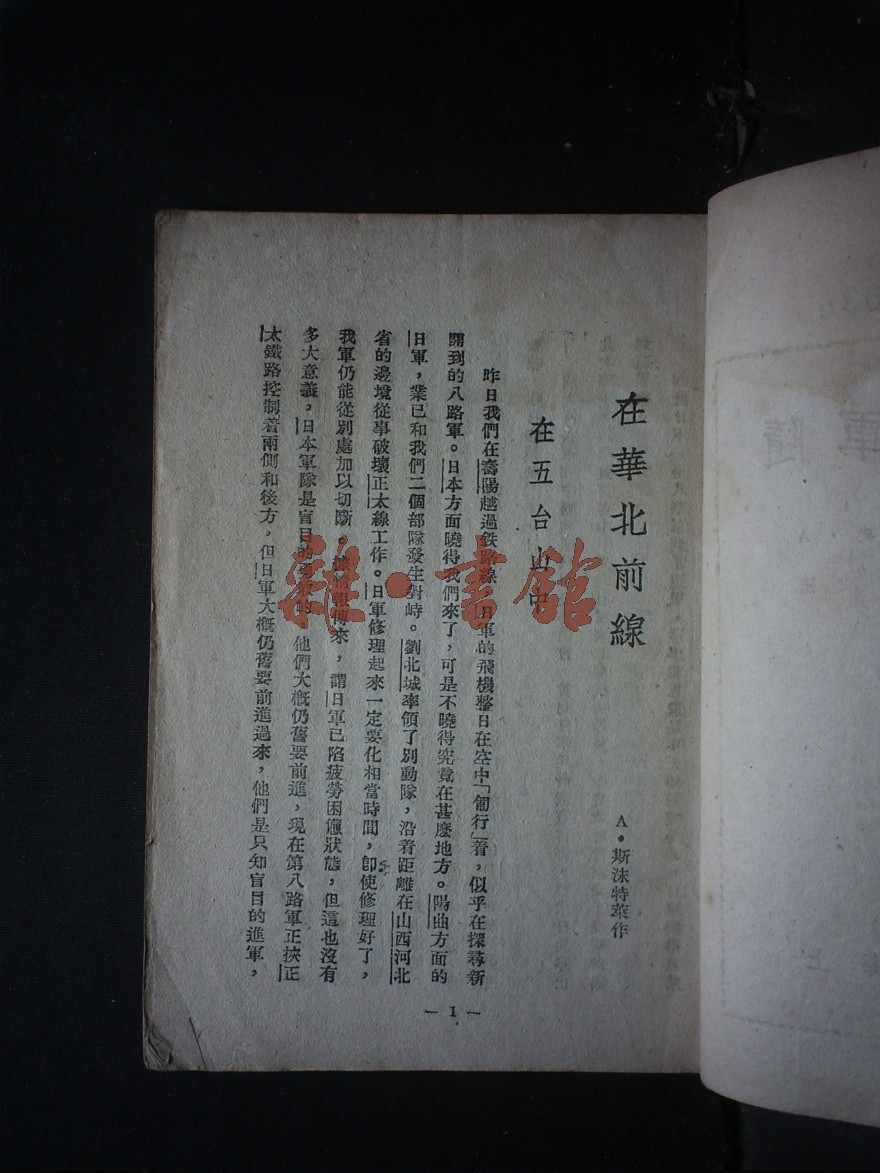 在華北前線
A．斯沫特萊作
在五台山中
昨日我們在壽陽越過鉄路線，日軍的飛機整日在空中「匍行」着，似乎在探尋新
開到的八路軍。日本方面曉得我們來了，可是不曉得究竟在甚麼地方。陽曲方面的
日軍，業已和我們二個部隊發生對峙。劉北城率領了別動隊，沿着距離在山西河北
省的邊境從事破壞正太線工作。日軍修理起來一定要化相當時間，卽使修理好了，
我軍仍能從別處加以切斷。據情報傳來，謂日軍已陷疲勞困憊狀態，但這也沒有
多大意義。日本軍隊是盲目的勇敢的，他們大槪仍舊要前進，現在第八路軍正挾正
太鐵路控制着兩側和後方，但日軍大槪仍舊要前進過來，他們是只知盲目的進軍，
— 1 —
雜·書館